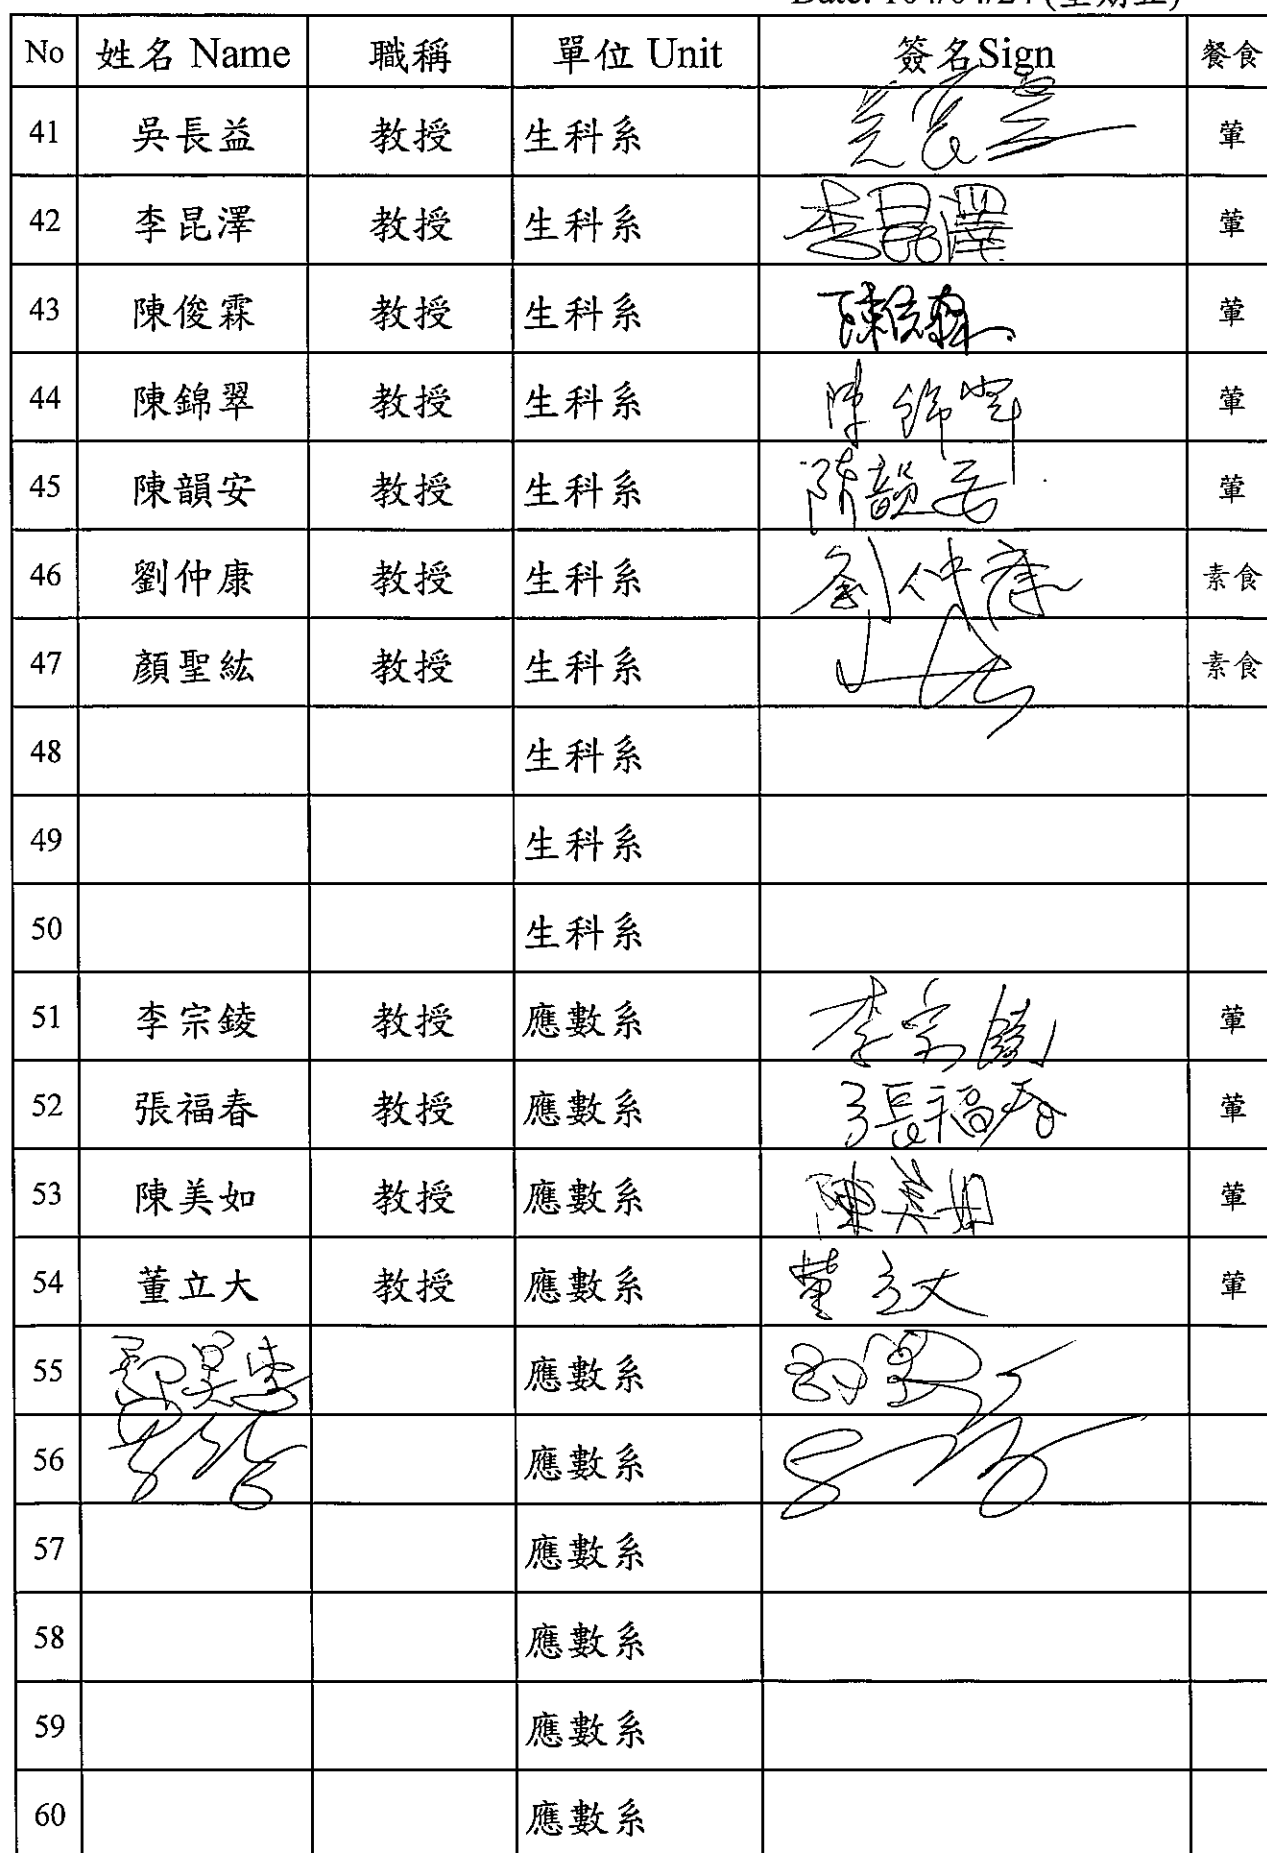 Date: 104/04/24 (星期五)
No 姓名 Name 職稱 單位 Unit 簽名Sign 餐食
41 吳長益 教授 生科系 吳長益 葷
42 李昆澤 教授 生科系 李昆澤 葷
43 陳俊霖 教授 生科系 陳俊霖 葷
44 陳錦翠 教授 生科系 陳錦翠 葷
45 陳韻安 教授 生科系 陳韻安 葷
46 劉仲康 教授 生科系 劉仲康 素食
47 顏聖紘 教授 生科系 素食
48 生科系
49 生科系
50 生科系
51 李宗錂 教授 應數系 李宗錂 葷
52 張福春 教授 應數系 張福春 葷
53 陳美如 教授 應數系 陳美如 葷
54 董立大 教授 應數系 董立大 葷
55 應數系
56 應數系
57 應數系
58 應數系
59 應數系
60 應數系